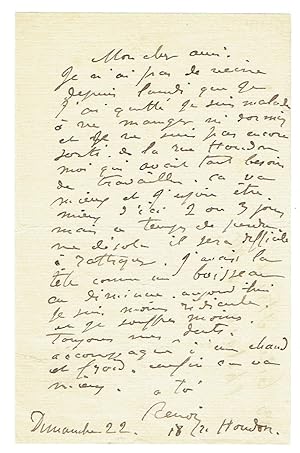 Mon cher ami.
Je n'ai pas de veine
depuis lundi que je
t'ai quitté je suis malade
à ne manger ni dormir
et je ne suis pas encore
sorti de la rue Houdon
moi qui avait tant besoin
de travailler. ça va
mieux et j'espère être
mieux d'ici 2 ou 3 jours
mais ce temps de perdu
me désole il sera difficile
à rattraper. J'avais la
tête comme un boisseau
ça diminue. aujourd'hui
je suis moins ridicule.
et je souffre moins
toujours mes dents.
accompagné d'un chaud
et froid. enfin ça va
mieux. a toi
Renoir
Dimanche 22. 18 r. Houdon.